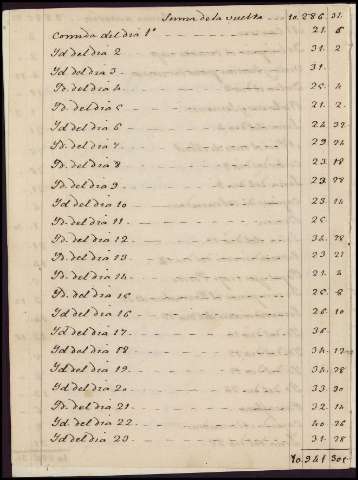 Suma de la vuelta 10.286. 31.
Comida del dia 1º 21. 6
Yd. del dia 2 31. 2
Yd. del dia 3 31.
Yd. del dia 4 25. 4
Yd. del dia 5 21. 2.
Yd. del dia 6 24. 32
Yd. del dia 7 29. 24
Yd. del dia 8 23. 18
Yd. del dia 9 29. 28
Yd. del dia 10 25. 14
Yd. del dia 11 25.
Yd. del dia 12 34. 28
Yd. del dia 13 23. 21
Yd. del dia 14 21. 4
Yd. del dia 15 25. 8
Yd. del dia 16 26. 10
Yd. del dia 17 36.
Yd. del dia 18 34. 17
Yd. del dia 19 34. 28
Yd. del dia 20 33. 30
Yd. del dia 21 32. 14
Yd. del dia 22 40. 26
Yd. del dia 23 31. 28
10.941